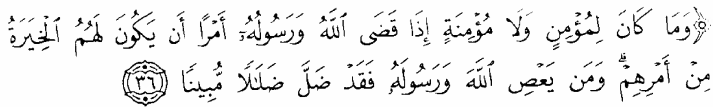 ۞وَمَا كَانَ لِمُؤۡمِنٖ وَلَا مُؤۡمِنَةٍ إِذَا قَضَى ٱللَّهُ وَرَسُولُهُۥٓ أَمۡرًا أَن يَكُونَ لَهُمُ ٱلۡخِيَرَةُ
مِنۡ أَمۡرِهِمۡۗ وَمَن يَعۡصِ ٱللَّهَ وَرَسُولَهُۥ فَقَدۡ ضَلَّ ضَلَٰلٗا مُّبِينٗا ٣٦